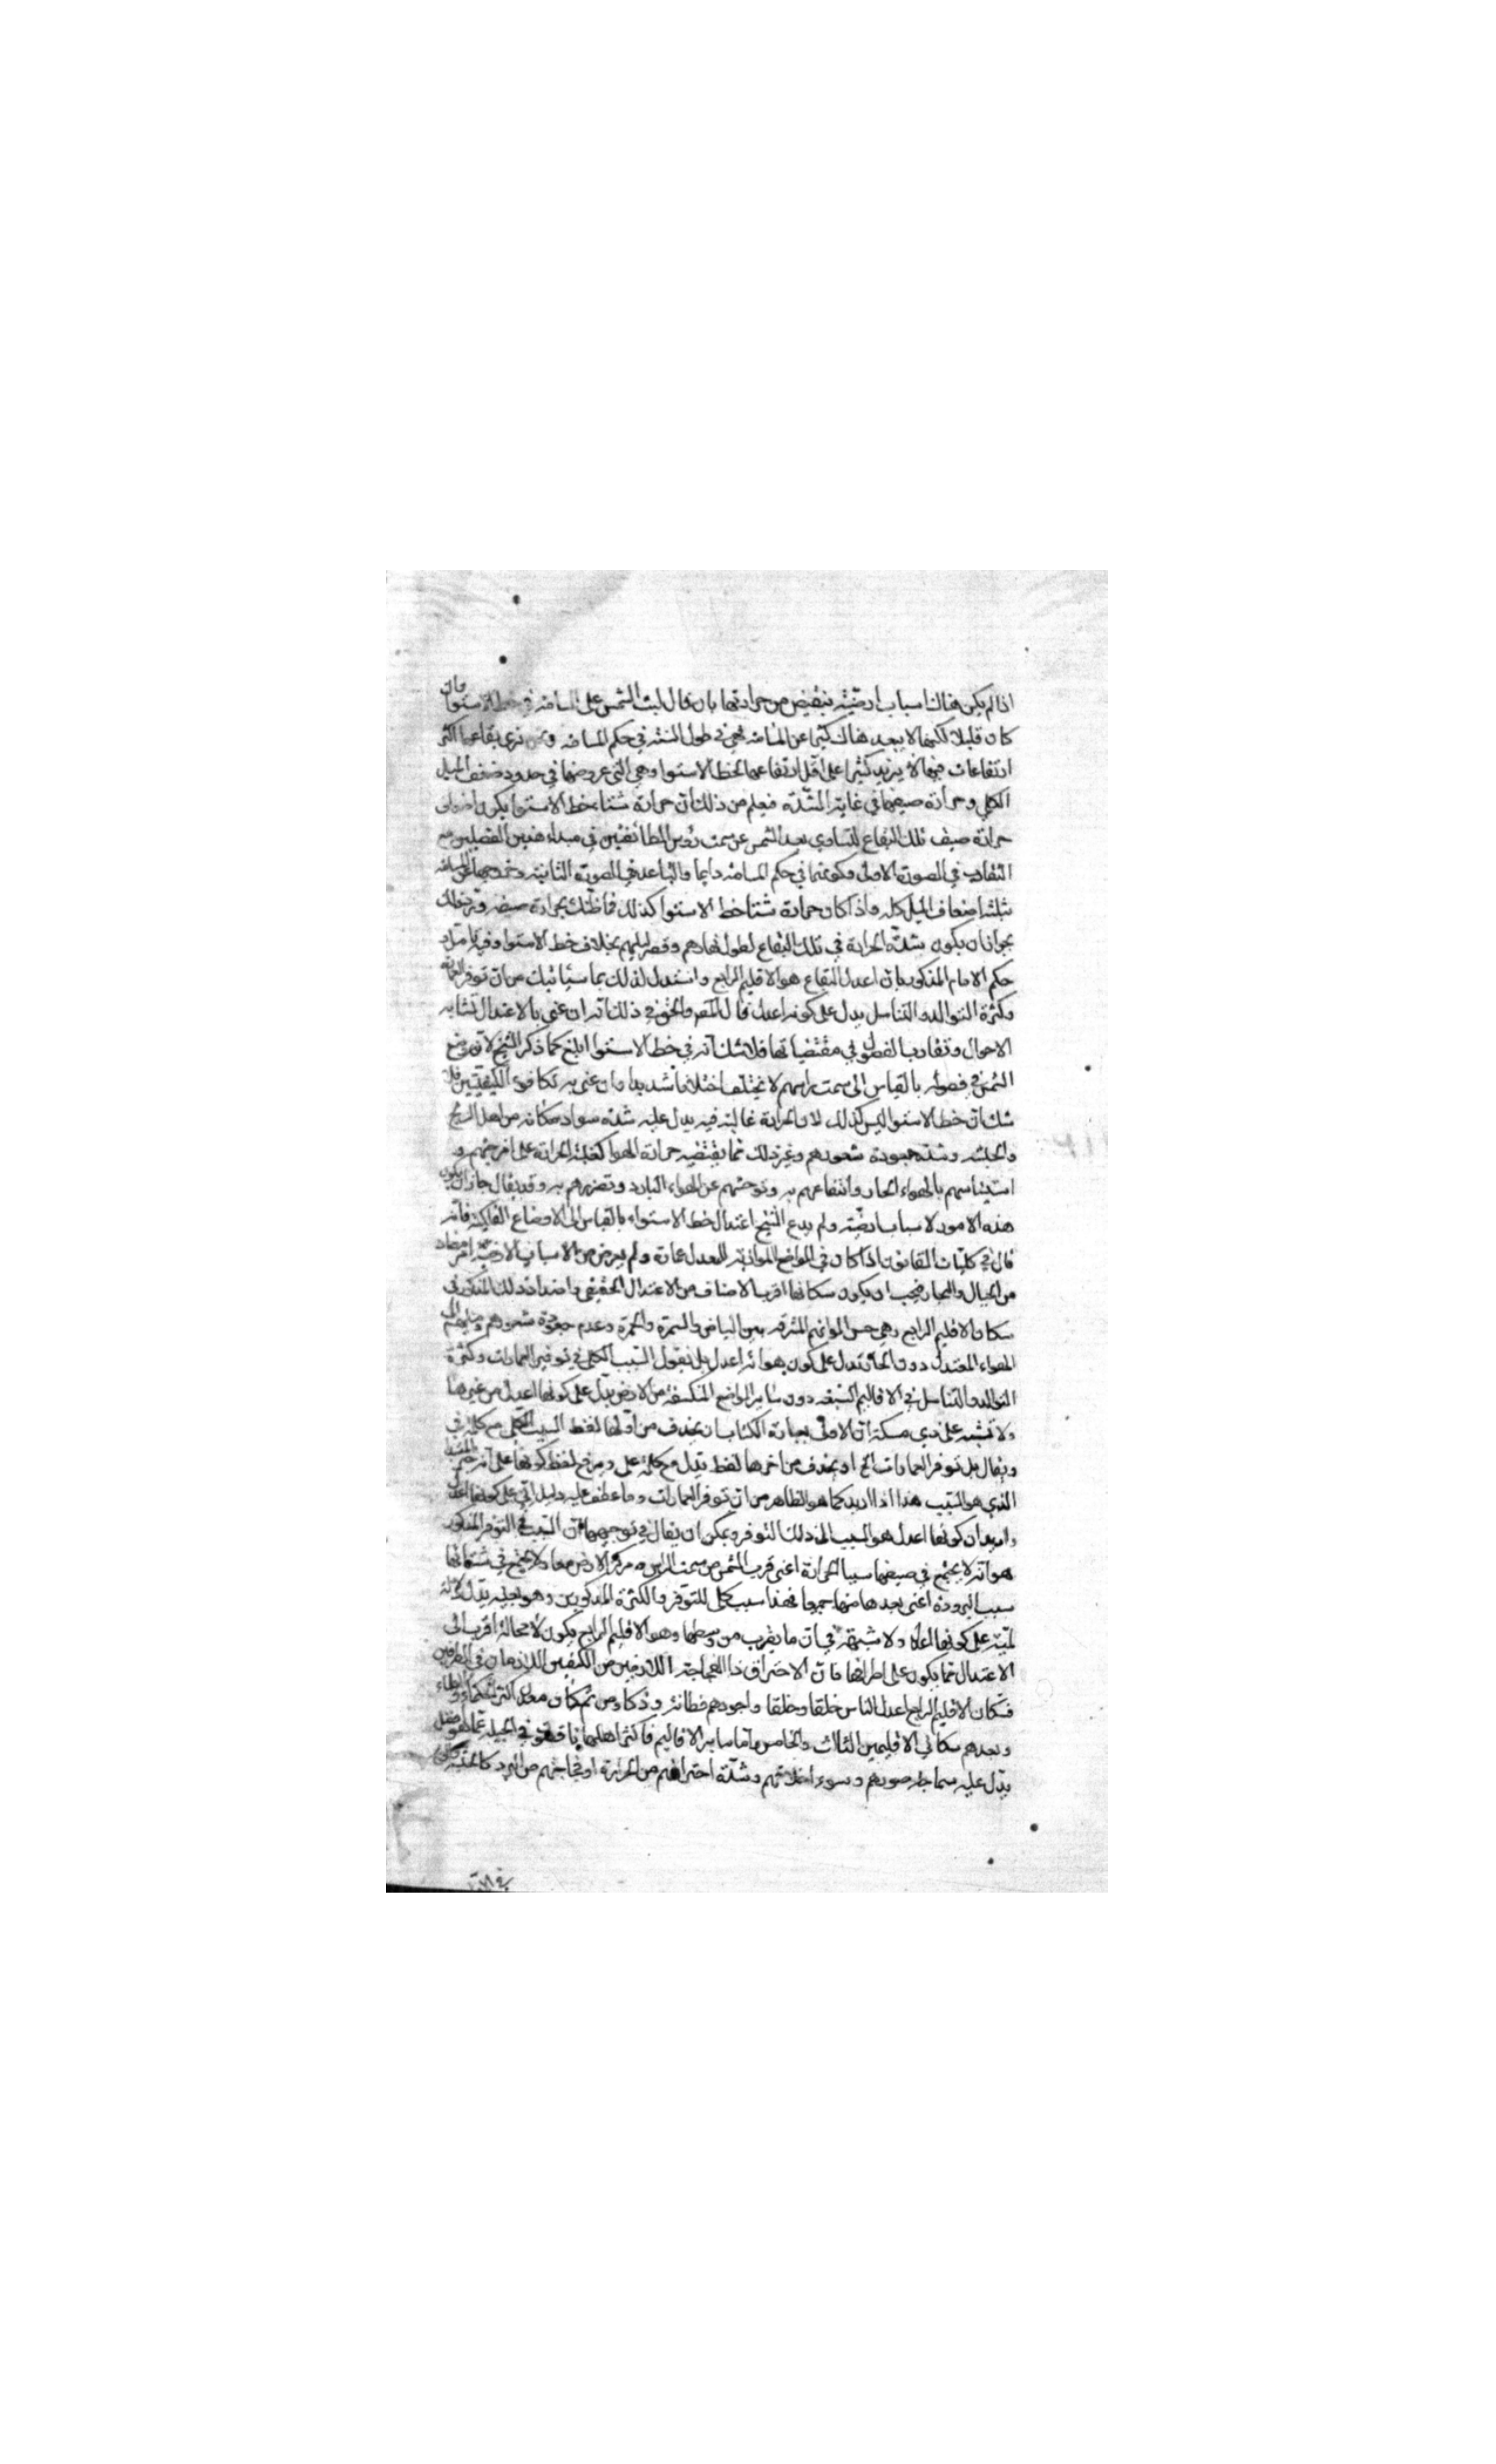 اذا لم يكن هناك اسباب ارضية بنقيض من حرارتها بان قال لبث الشمس على المسامتة في خط الاستوا وان
كان قليلا لكنها لا يبعد هناك كثيرا عن المسامتة فهي في طول السنة في حكم المسامتة ونحن نرى بقاعا اكثر
ارتفاعات فيها لا يزيد كثيرا على اقل ارتفاعها لخط الاستوا وهي التي عروضها في حدود ضعف الميل
الكلي وحرارة صيفها في غاية الشدة فيعلم من ذلك ان حرارة شتاء خط الاستوا يكون
حرارة صيف تلك البقاع لتساوي بعد الشمس عن سمت رؤس الطائفتين في مبداء هذين الفصلين مع
التقارب في الصورة الاولى وكونها في حكم المسامتة دايما والتباعد في الصورة الثانية وخروجها عن المسامتة
بثلثة اضعاف الميل كله واذا كان حرارة شتا خط الاستوا كذلك فما ظنك بحرارة صيفه
بجواز ان يكون شدة الحرارة في تلك البقاع لطول نهارهم وقصر ليلهم بخلاف خط الاستوا وفيه تامل و
حكم الامام المذكور بان اعدل البقاع هو الاقليم الرابع واستدل لذلك بما سياتيك من ان توفر العمارة
وكثرة التوالد والتناسل يدل على كونه اعدل قال المص والحق في ذلك انه ان عنى بالاعتدال تشابه
الاحوال وتقارب الفصول في مقتضياتها فلا شك انه في خط الاستوا ابلغ كما ذكر الشيخ لان وضع
الشمس في فصوله بالقياس الى سمت راسهم لا يختلف اختلافا شديدا وان عنى به تكافوء الكيفيتين فلا
شك ان خط الاستوا ليس كذلك لان الحرارة غالبة فيه يدل عليه شدة سواد سكانه من اهل الزنج
والحبشة وشدة جعودة شعورهم وغير ذلك مما يقتضيه حرارة الهوا كغلبة الحرارة على امزجتهم و
استيناسهم بالهواء الحار وانتفاعهم به وتوحشهم عن الهواء البارد وتضررهم به وقد يقال جاز ان يكون
هذه الامور لاسباب ارضية ولم يدع الشيخ اعتدال خط الاستواء بالقياس الى الاوضاع الفلكية فانه
قال في كليات القانون اذا كان في المواضع الموازية للمعدل عمارة ولم يعرض من الاسباب الارضية امر مضاد
من الجبال والبحار فيجب ان يكون سكانها اقرب الاصناف من الاعتدال الحقيقي واضداد ذلك المذكور في
سكان الاقليم الرابع وهي حسن الوانهم المشرقة بين البياض والسمرة والحمرة وعدم جعودة شعورهم وميلهم الى
الهواء المعتدل دون الحار تدل على كون هوائه اعدل بل نقول السبب الكلي في توفير العمارات وكثرة
التوالد والتناسل في الاقاليم السبعة دون ساير المواضع المنكشفة من الارض يدل على كونها اعدل من غيرها
ولا يشتبه على ذي مسكة ان الاولى بعبارة الكتاب ان يحذف من اولها لفظ السبب الكلي مع كلمة في
ويقال بل توفر العمارات الخ او يحذف من اخرها لفظ يدل مع كلمة على ويرفع لفظ كونها على انه خبر المبتدا
الذي هو السبب هذا اذا اريد كما هو الظاهر من ان توفر العمارات وما عطف عليه دليل اني على كونها اعدل
واريد ان كونها اعدل هو السبب الى ذلك التوفر ويمكن ان يقال في توجيهها ان السبب في التوفر المذكور
هو انه لا يجتمع في صيفها سببا الحرارة اعني قرب الشمس من سمت الراس و مركز الارض معا ولا يجتمع في شتائها
سببا البرودة اعني بعدها منهما جميعا فهذا سبب كلي للتوفر والكثرة المذكورين وهو بعينه يدل دلالة
لمية على كونها اعدل ولا شبهة في ان ما يقرب من وسطها وهو الاقليم الرابع يكون لا محالة اقرب الى
الاعتدال مما يكون على اطرافها فان الاحتراق والفجاجة اللازمين من الكيفيتين اللازمتان في الطرفين
فسكان الاقليم الرابع اعدل الناس خلقا وخلقا واجودهم فطانة وذكاء ومن ثم كان معدن اكثر الحكماء والعلماء
وبعدهم سكان الاقليمين الثالث والخامس واما ساير الاقاليم فاكثر اهلها ناقصون في الجبلة عما هو افضل
يدل عليه سماجة صورهم وسوء اخلاقهم وشدة احتراقهم من الحرارة او فجاجتهم من البرد كالحبشة